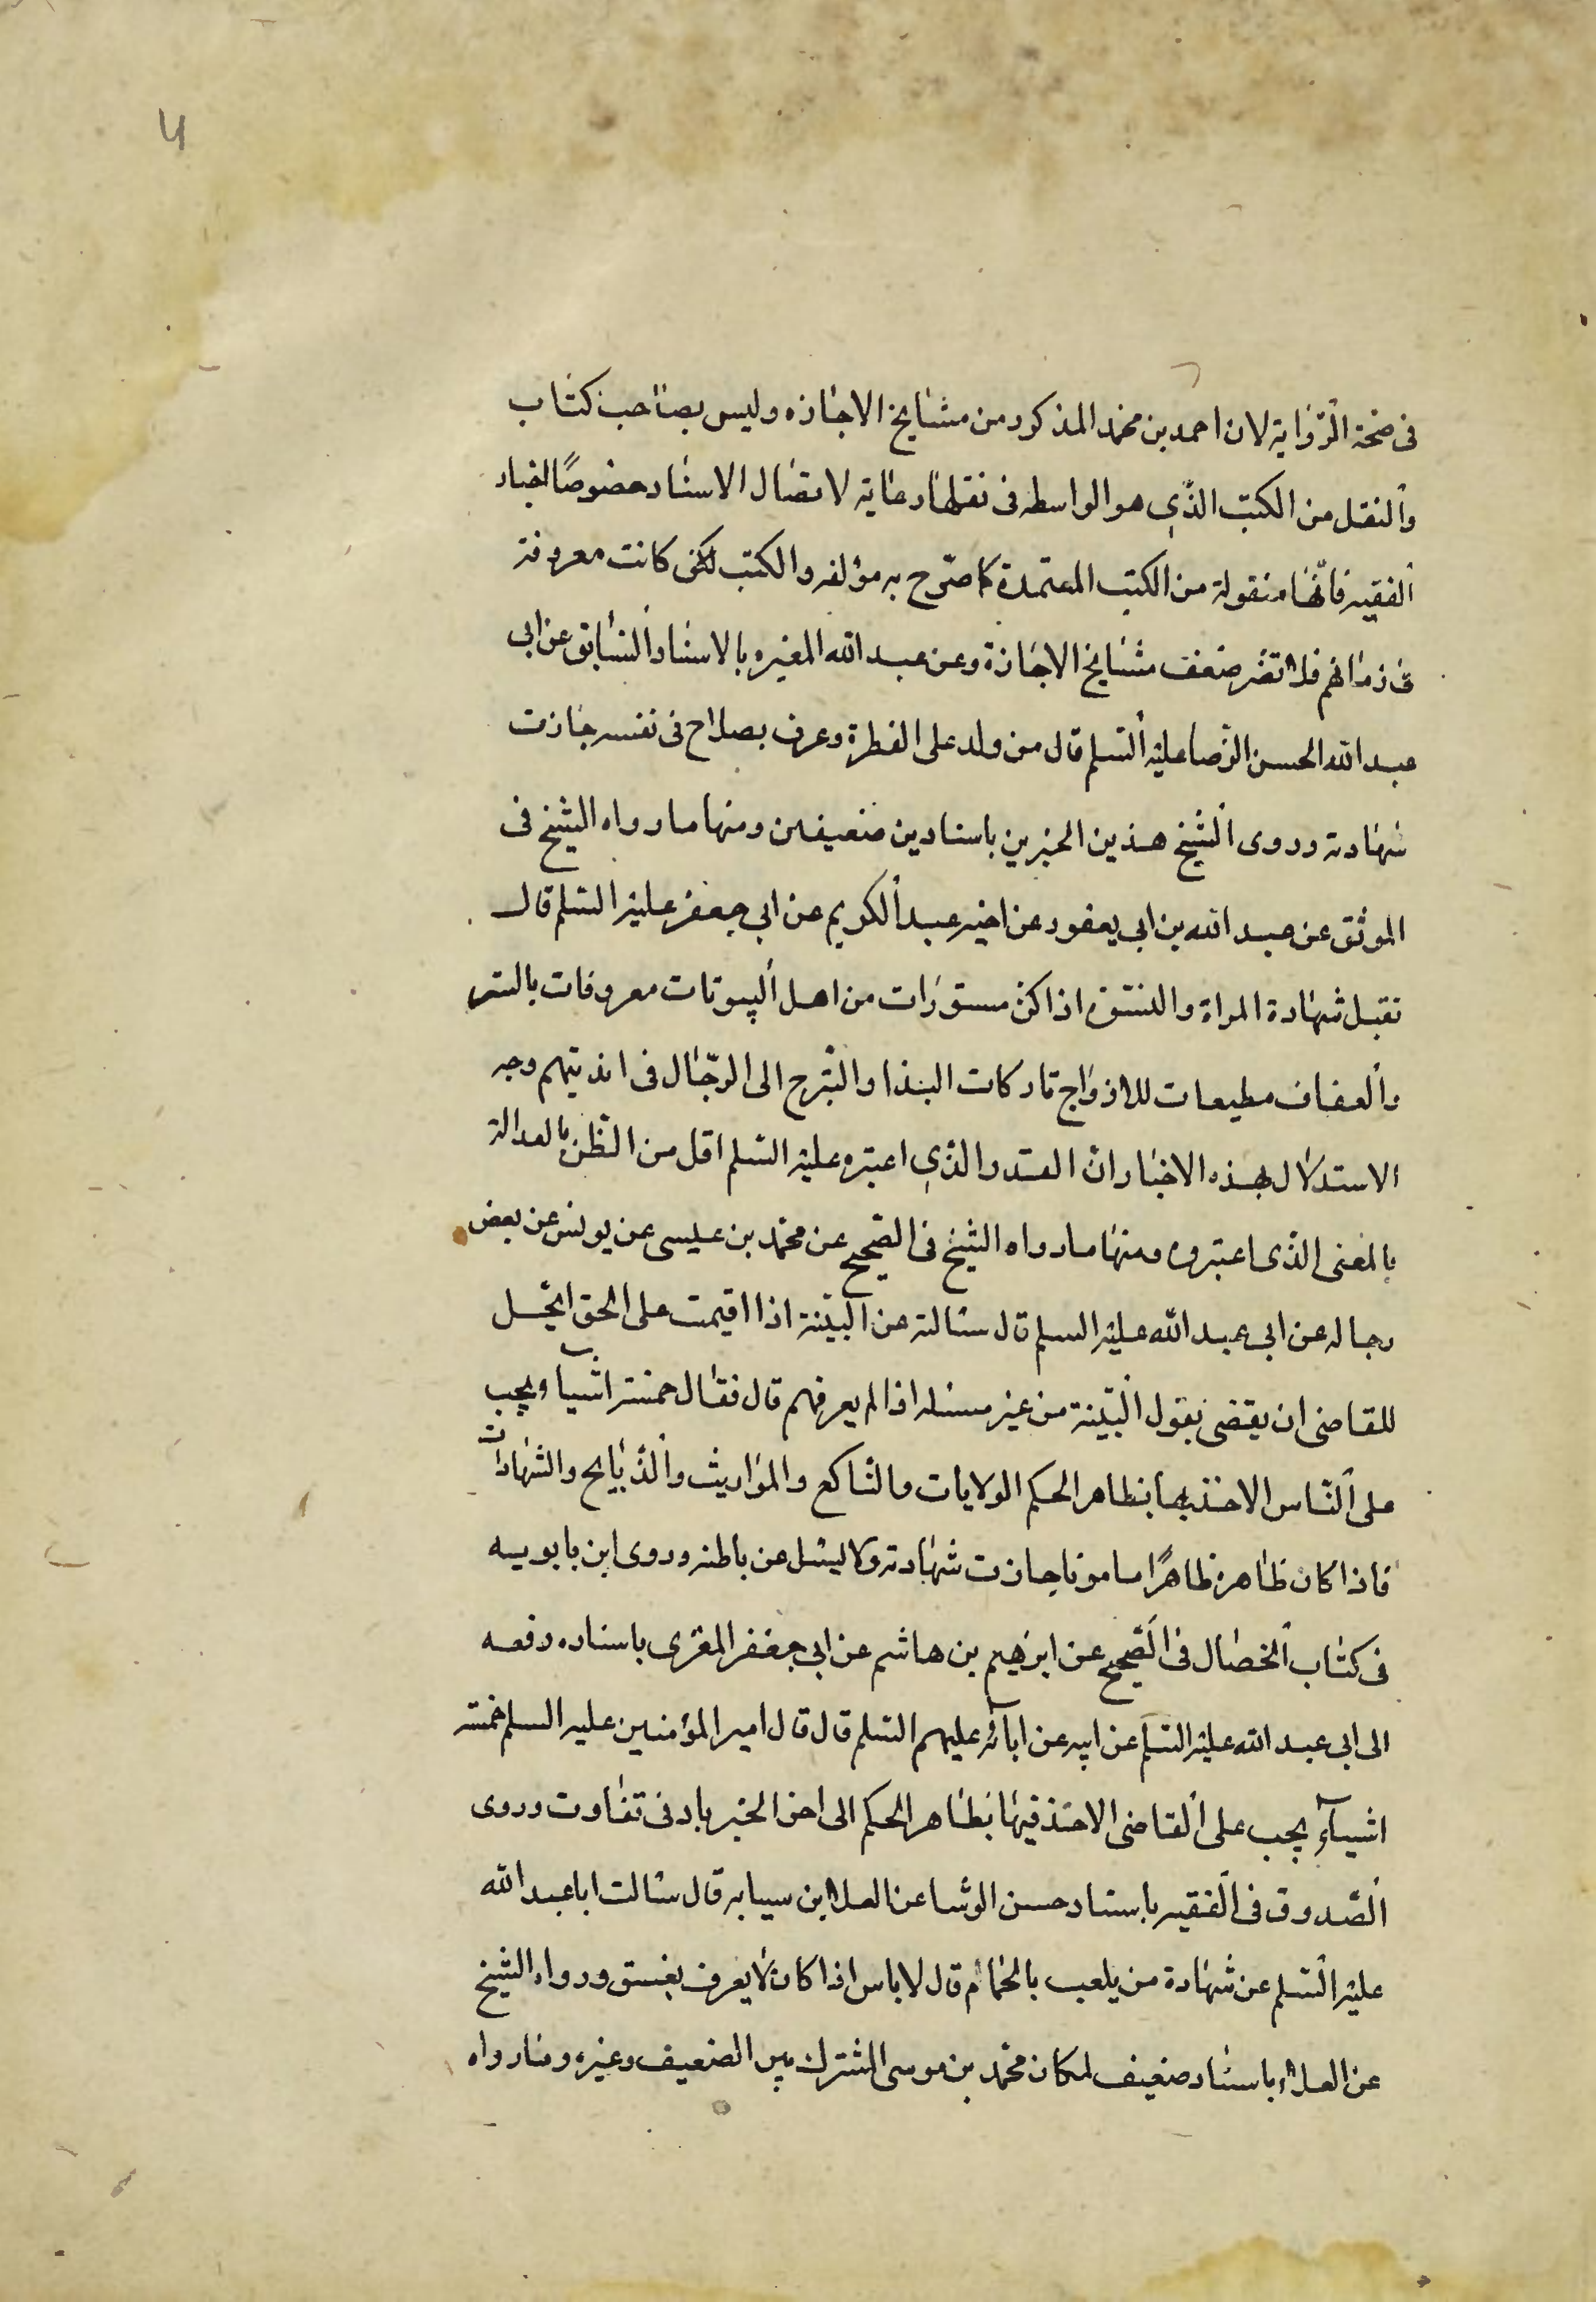 فى صحة الرّوٰاية لان احمد بن محمّد المذكور من مشايخ الاجازه وليس بصٰاحب كتٰاب
والنقل من الكتب الذّي هو الواسطه فى نقلهٰا رعاية لاتصٰال الاسنٰاد خصوصًا اخبار
الفقيه فانّهٰا منقولة من الكتب المعتمدة كما صرّح به مؤلفه والكتب كانت معروفة
فى زمٰانهم فلا تضر ضعف مشٰايخ الاجٰازة وعن عبد الله المغيره بالاسنٰاد السّٰابق عن ابى
عبد الله الحسن الرّضا عليه السّلم قال من ولد على الفطرة وعرف بصلاح فى نفسه جٰازت
شهٰادته وروى الشّيخ هذين الخبرين باسنادين ضعيفين ومنها ما رواه الشيخ فى
الموثق عن عبد الله بن ابى يعفور عن اخيه عبد الكريم عن ابى جعفر عليه السّلم قال
تقبل شهٰادة المراة والنسّوة اذا كنّ مستورٰات من اهل البيوتات معروفات بالستر
والعفاف مطيعات للازوٰاج تاركات البذا والتّبرج الى الرجّال فى انديتهم وجه
الاستدلال بهذه الاخبٰار انّ القدر الذّي اعتبره عليه السّلم اقل من الظّن بالعدالة
بالمعنى الذّى اعتبروه ومنهٰا ما رواه الشيخ فى الصّحيح عن محمّد بن عيسى عن يونس عن بعض
رجاله عن ابى عبد الله عليه السلم قال سٰالته عن البيّنة اذا اقيمت على الحق ايحل
للقاضى ان يقضى بقول البيّنة من غير مسئله اذا لم يعرفهم قال فقٰال خمسة اشيا ويجب
على النّاس الاخذ بها بظاهر الحكم الولايات والتناكح والموٰاريث والذّبٰايح والشهٰادات
فاذا كان ظاهره ظاهرًا مامونا جازت شهٰادته ولا ليسئل عن باطنه وروى ابن بابويه
فى كتٰاب الخصٰال فى الصّحيح عن ابرٰهيم بن هاشم عن ابى جعفر المقرى باسناده رفعه
الى ابى عبد الله عليه السّلم عن ابيه عن ابآئه عليهم السّلم قال قال امير المؤمنين عليه السلم خمسة
اشيآءٍ يجب على القاضى الاخذ فيهٰا بظاهر الحكم الى اخر الخبر بادنى تفٰاوت وروى
الصّدوق فى الفقيه باسناد حسن الوشا عن العلاء بن سيابه قال سٰالت ابا عبد الله
عليه السّلم عن شهٰادة من يلعب بالحمٰام قال لا باس اذا كان لا يعرف بفسق ورواه الشيخ
عن العلاء باسنٰاد ضعيف لمكان محمّد بن موسى المشترك بين الضعيف وغيره وممٰا رواه